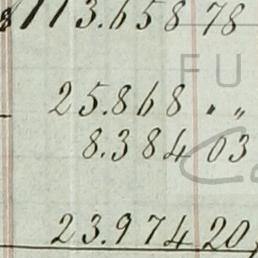 113.658 78
25.868 " "
8.384 03
23.974 20
FU
Ca